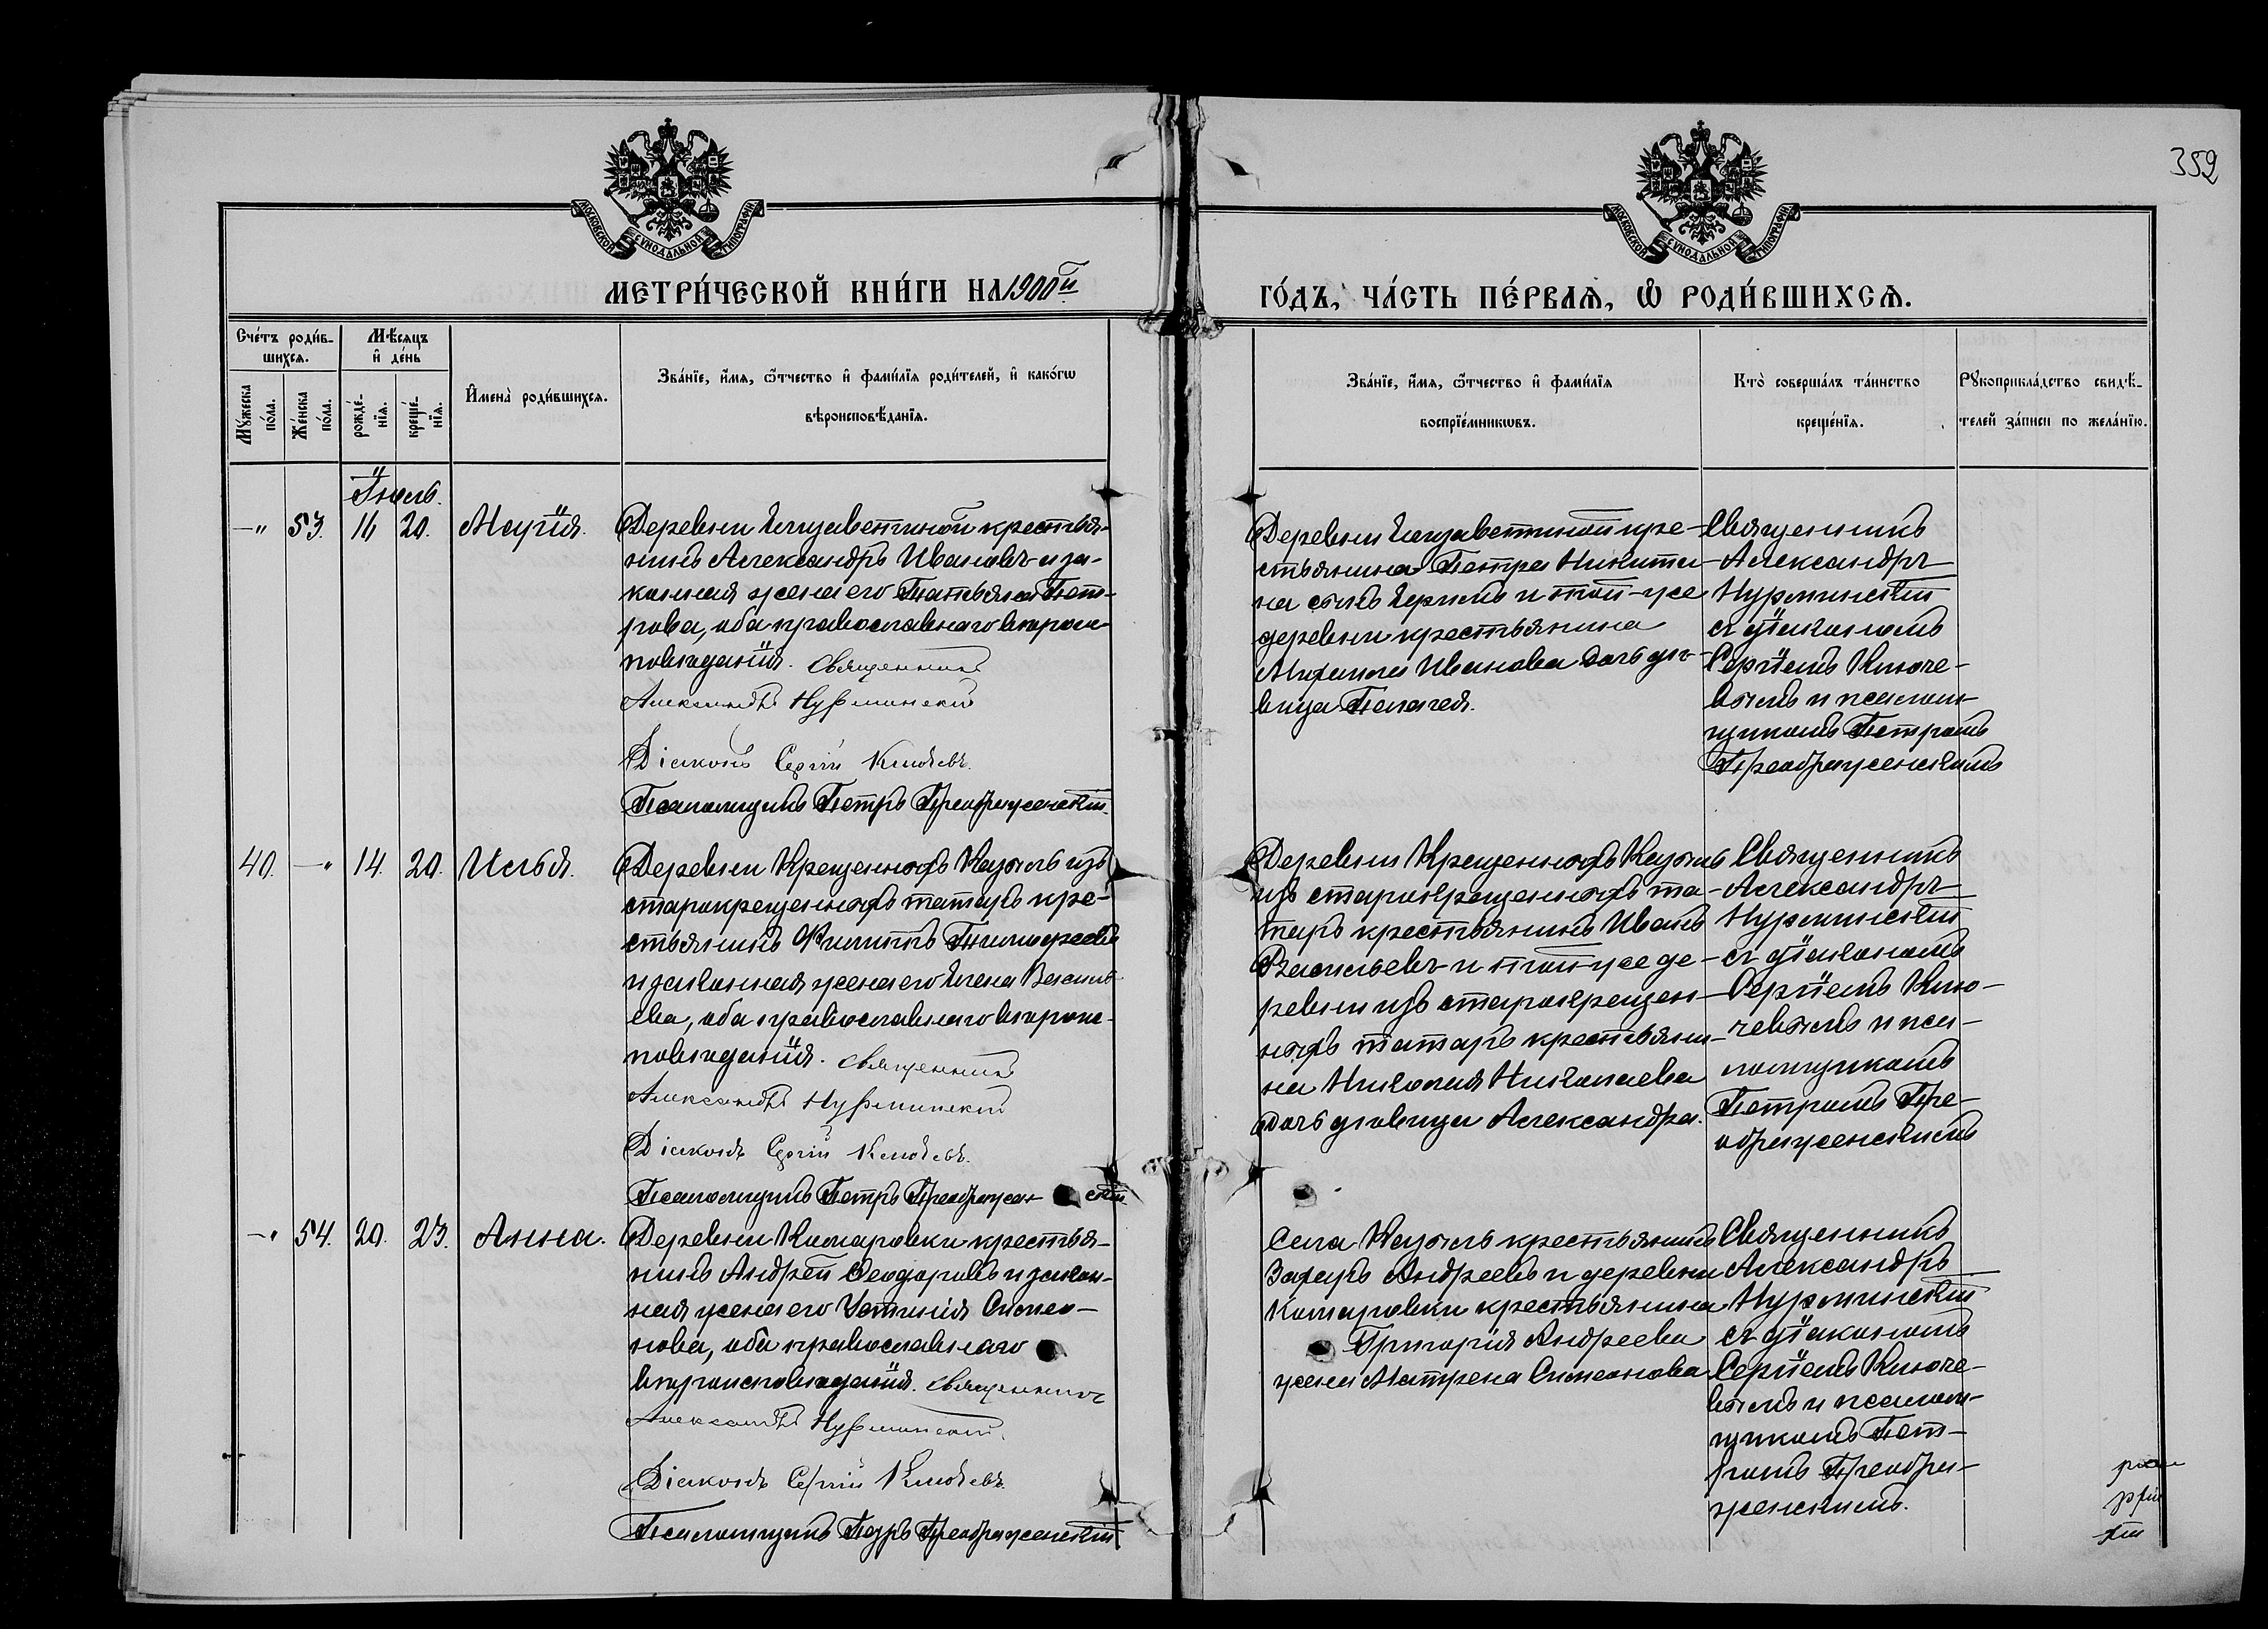 352
МОСКОВСКОЙ СУНОДАЛЬНОЙ ТИПОГРАФІИ
МОСКОВСКОЙ СУНОДАЛЬНОЙ ТИПОГРАФІИ
МЕТРИ́ЧЕСКОЙ КНИ́ГИ НА 1900й
ГО́ДЪ, ЧА́СТЬ ПЕ́РВАѦ, Ѽ РОДИ́ВШИХСѦ.
Сче́тъ роди́в-
шихсѧ.
Мꙋ́жеска по́ла.
Же́нска по́ла.
Мѣ́сѧцъ
и҆ де́нь
рожде́-
нїѧ.
креще́-
нїѧ.
И҆мена̀ роди́вшихсѧ.
Зва́нїе, и҆́мѧ, ѻ҆́тчество и҆ фами́лїѧ роди́телей, и҆ како́гѡ
вѣроисповѣ́данїѧ.
Зва́нїе, и҆́мѧ, ѻ҆́тчество и҆ фами́лїѧ
воспрїе́мникѡвъ.
Кто̀ соверша́лъ та́инство
креще́нїѧ.
Рꙋкоприкла́дство свидѣ́-
телей за́писи по жела́нїю.
Іюль.
—„ 53. 11 20. Марія.
Деревни Елизаветиной крестья-
нинъ Александръ Ивановъ и за-
конная жена его Татьяна Пет-
рова, оба православнаго вѣроис-
повѣданія. Священникъ
Александръ Нурминскій
Діаконъ Сергій Ключевъ.
Псаломщикъ Петръ Преображенскій.
Деревни Елизаветиной кре-
стьянина Петра Никити-
на сынъ Ефимъ и той-же
деревни крестьянина
Михаила Иванова дочь дѣ-
вица Пелагея.
Священникъ
Александръ
Нурминскій
съ діакономъ
Сергіемъ Ключе-
вымъ и псалом-
щикомъ Петромъ
Преображенскимъ
40. —„ 14. 20. Илья.
Деревни Крещенныхъ Каузъ изъ
старокрещенныхъ татаръ кре-
стьянинъ Филиппъ Тимофеевъ
и законная жена его Елена Василь-
ева, оба православнаго вѣроис-
повѣданія. Священникъ
Александръ Нурминскій
Діаконъ Сергій Ключевъ.
Псаломщикъ Петръ Преображенскій
Деревни Крещенныхъ
изъ старокрещенныхъ та-
таръ крестьянинъ Иванъ
Васильевъ и той же де-
ревни изъ старокрещен-
ныхъ татаръ крестьяни-
на Николая Николаева
дочь дѣвица Александра.
Священникъ
Александръ
Нурминскій
съ діакономъ
Сергіемъ Клю-
чевымъ и пса-
ломщикомъ
Петромъ Пре-
ображенскимъ
—„ 54. 20. 23. Анна.
Деревни Комаровки крестья-
нинъ Андрей Феодоровъ и закон-
ная жена его Устинія Симео-
нова, оба православнаго
вѣроисповѣданія. Священникъ
Александръ Нурминскій.
Діаконъ Сергій Ключевъ.
Псаломщикъ Петръ Преображенскій
Села крестьянинъ
Захаръ Андреевъ и деревни
Комаровки крестьянина
Григорія Андреева
жена Матрена Симеонова
Священникъ
Александръ
Нурминскій
съ діакономъ
Сергіемъ Ключе-
вымъ и псалом-
щикомъ Пет-
ромъ Преобра-
женскимъ.